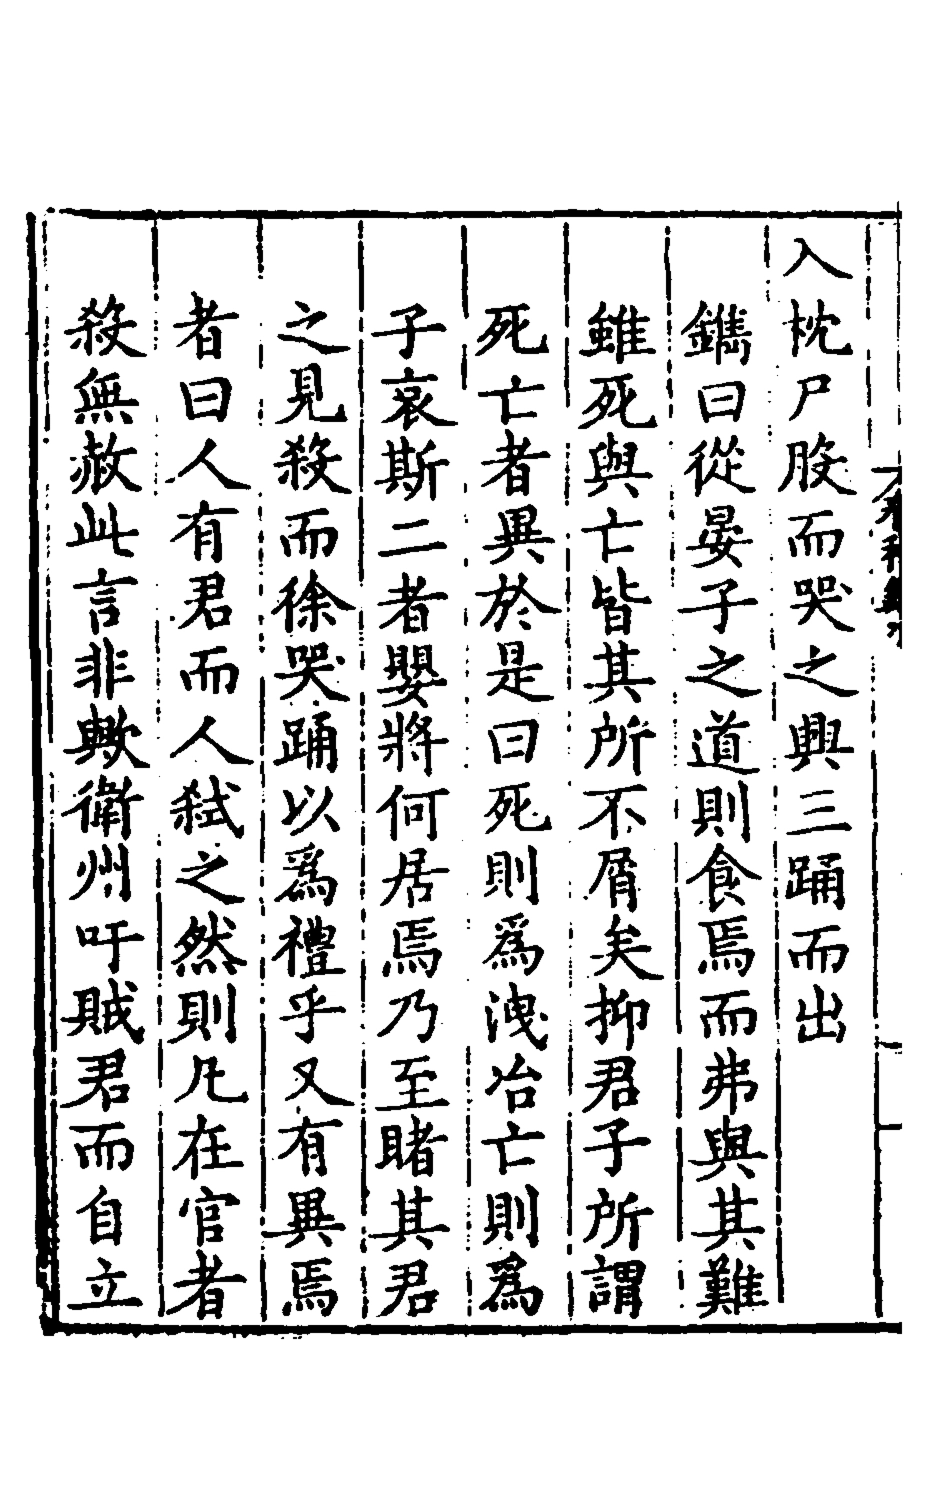 入枕尸股而哭之興三踊而出
鐫曰從晏子之道則食焉而弗與其難
雖死與亡皆其所不屑矣抑君子所謂
死亡者異於是曰死則為洩冶亡則為
子哀斯二者嬰將何居焉乃至睹其君
之見殺而徐哭踊以為禮乎又有異焉
者曰人有君而人弒之然則凡在官者
殺無赦此言非歟衛州吁賊君而自立